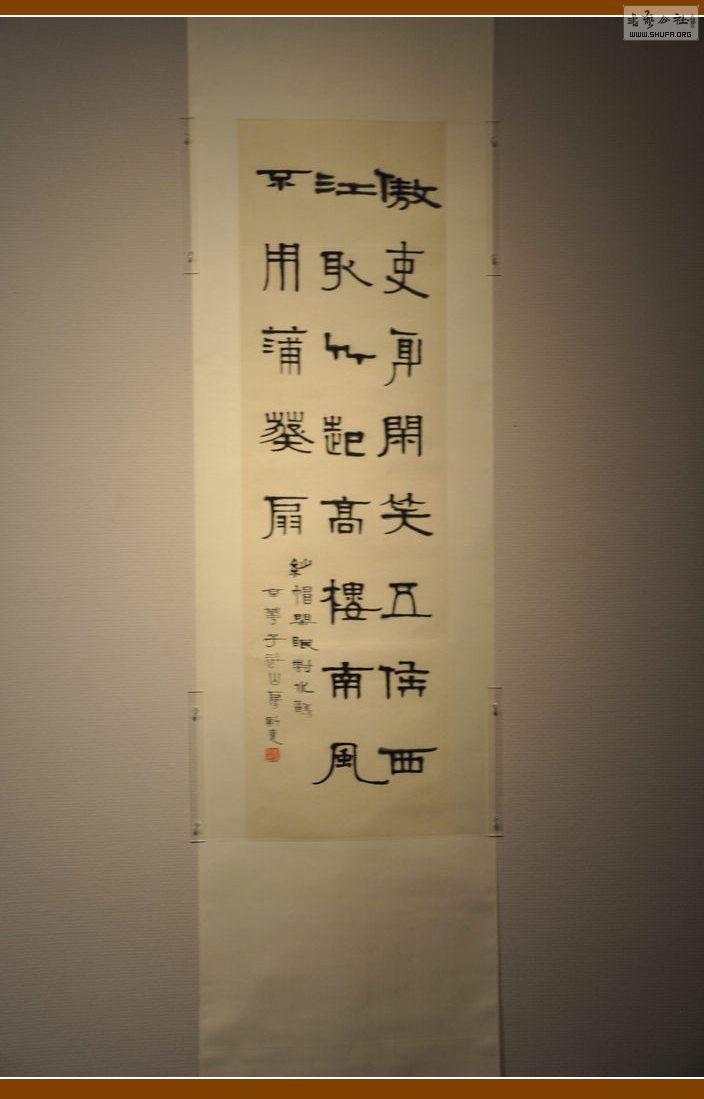 傲吏身閑笑五侯西
江取竹起高樓南風
不用蒲葵扇
紗帽閒眠對水鷗
书艺公社
WWW.SHUFA.ORG